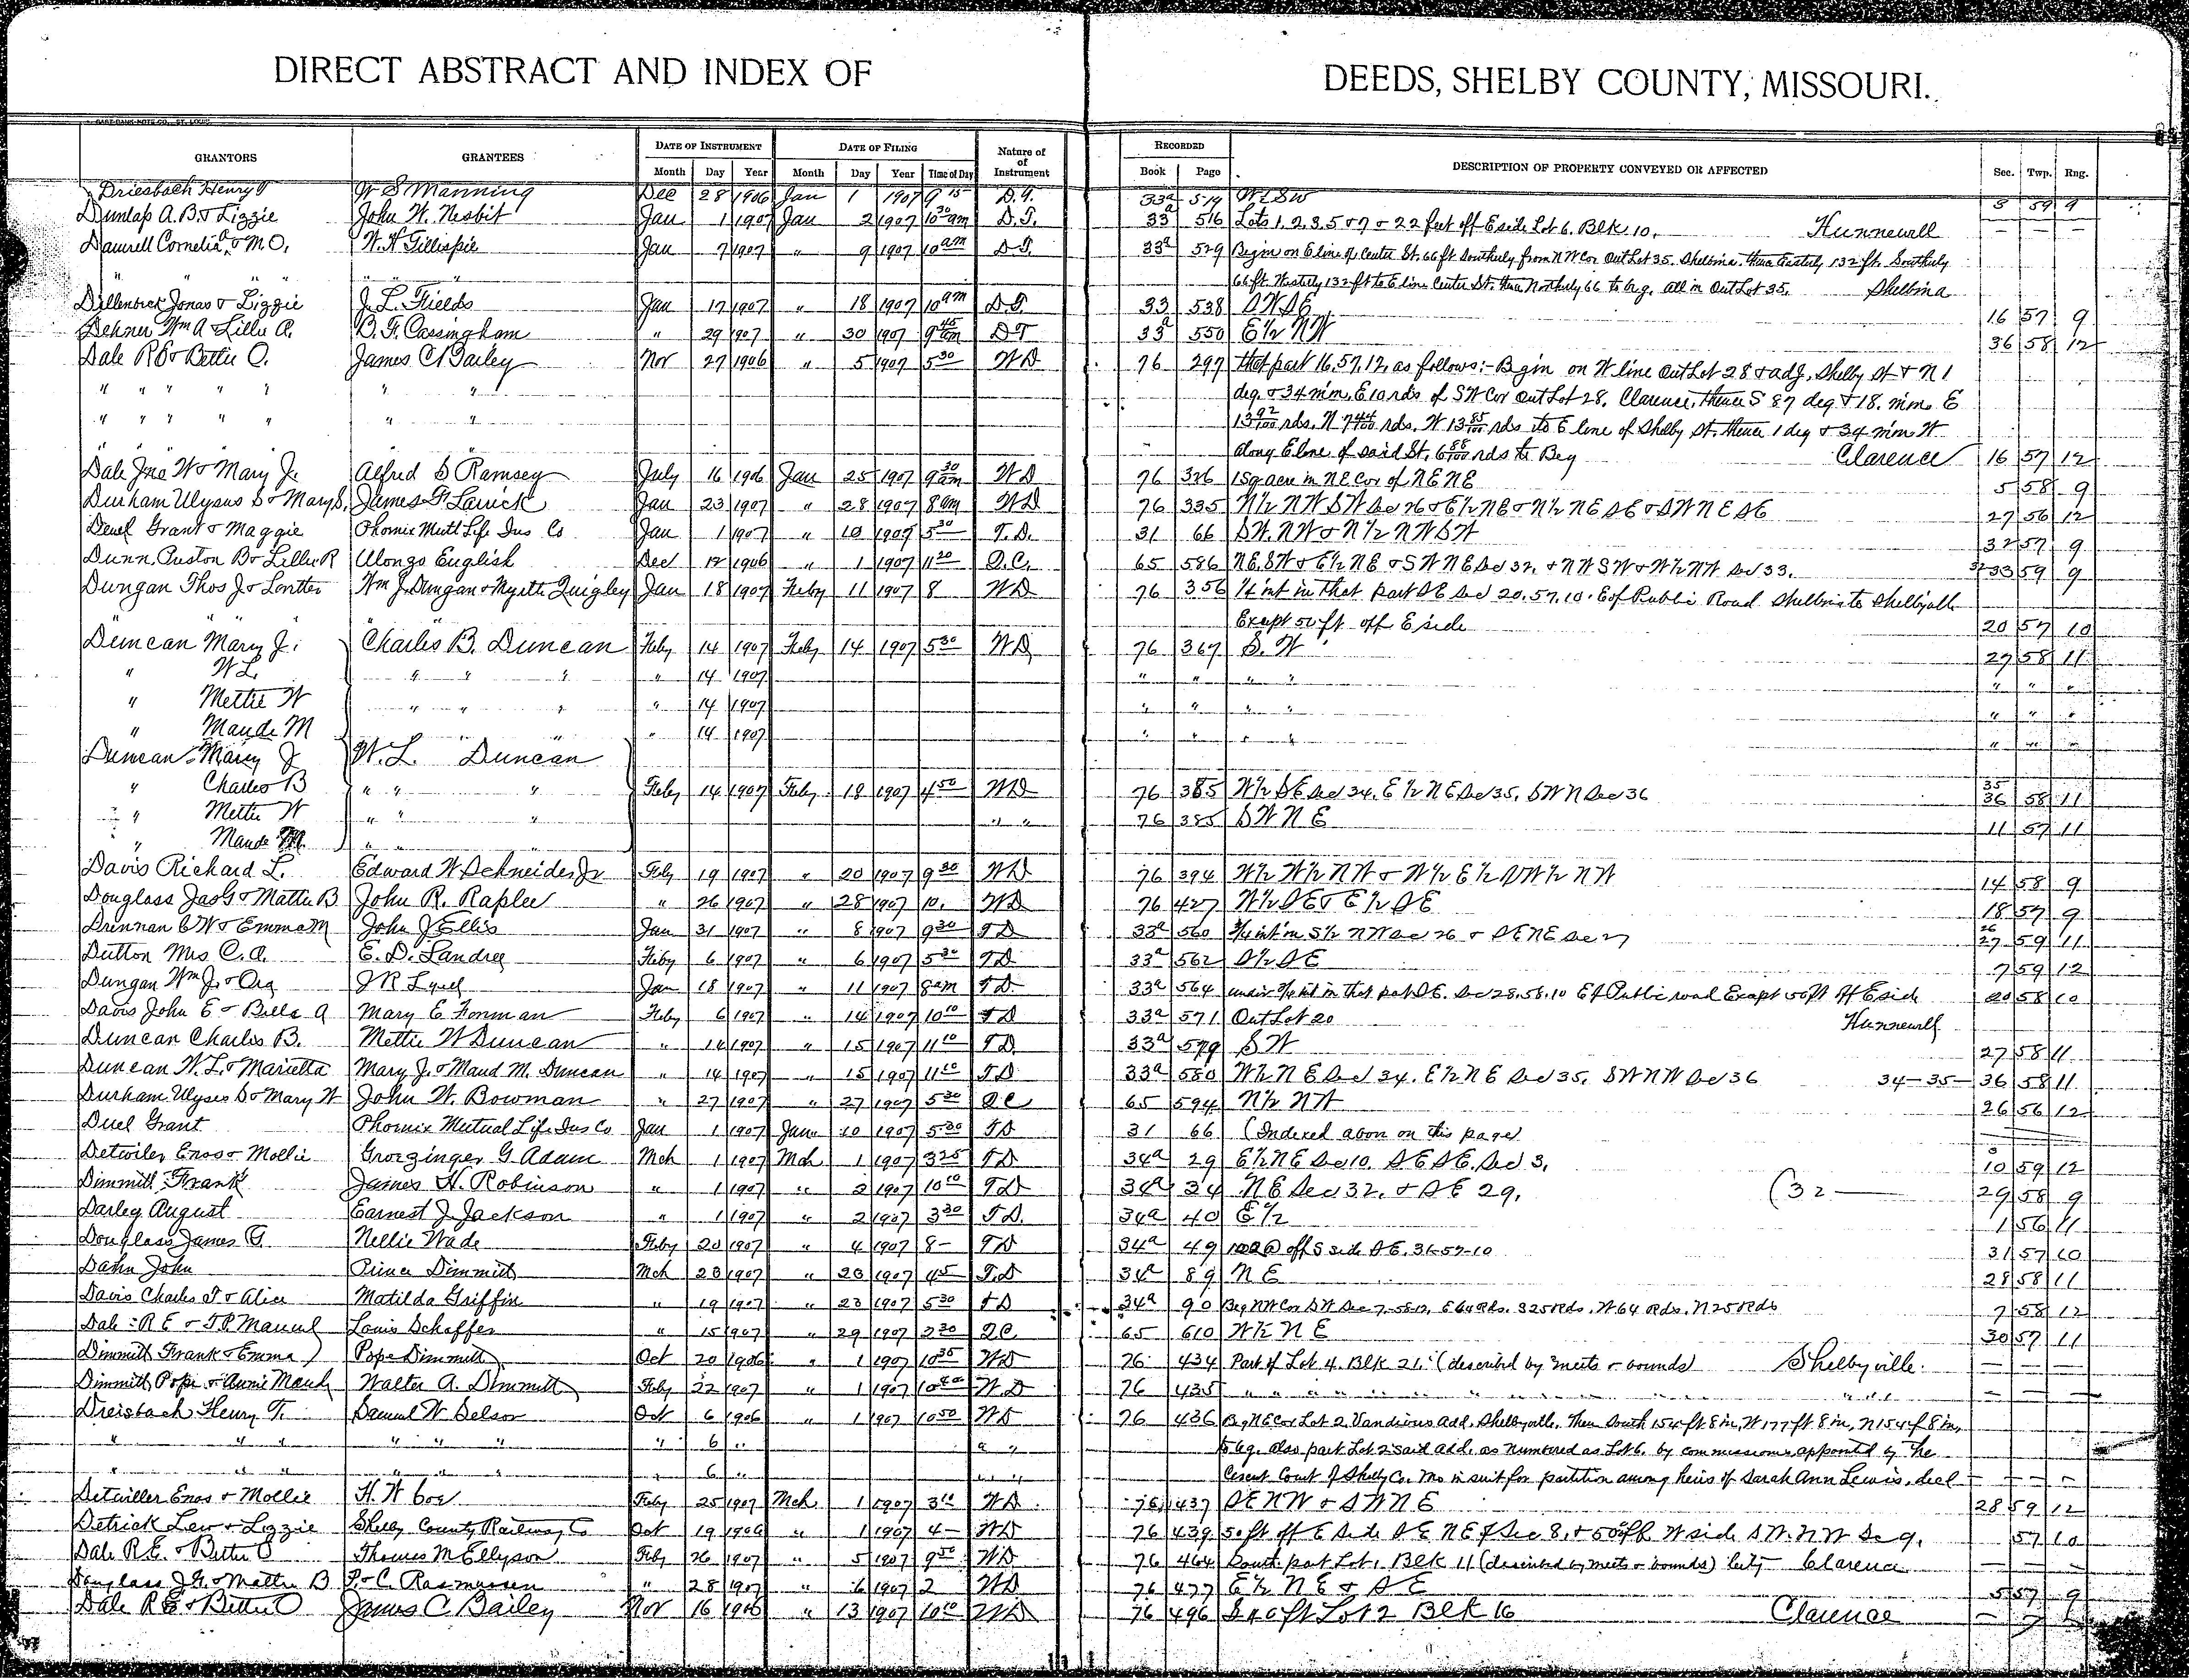 DIRECT ABSTRACT AND INDEX OF DEEDS, SHELBY COUNTY, MISSOURI.
GRANTORS GRANTEES DATE OF INSTRUMENT DATE OF FILING Nature of of Instrument RECORDED DESCRIPTION OF PROPERTY CONVEYED OR AFFECTED Sec. Twp. Rng.
Month Day Year Month Day Year Time of Day Book Page
Driesbach Henry T W S Manning Dec 28 1906 Jan 1 1907 9 15 D.T. 33a 519 59 9
Dunlap A.B. & Lizzie John W. Nesbit Jan 1 1907 Jan 2 1907 10 30 am D.T. 33a 516 Lots 1, 2, 3, 5 & 7 & 22 feet off E side Lot 6. Blk 10. Hunnewell
Damrell Cornelia A & M.O. W. H Gillispie Jan 7 1907 " 9 1907 10 am D T. 33a 529 Begin on E line of Center St. 66 ft Southerly from N W Cor Out Lot 35. Shelbina. thence Easterly 132 ft. Southerly
" " " " " " 66 ft. Westerly 132 ft to E line Center St. thence Northerly 66 to beg. all in Out Lot 35. Shelbina
Dillenbeck Jonas & Lizzie J. L. Fields Jan 17 1907 " 18 1907 10 am D T. 33 538 S W S E 16 57 9
Dehner Wm A Lillie A. B. F. Cassingham " 29 1907 " 30 1907 9 45 am D T 33a 550 E ½ N W 36 58 12
Dale R E & Bettie O. James C Bailey Nov 27 1906 " 5 1907 5 30 W D 76 297 that part 16, 57, 12, as follows:- Begin on W line Out Lot 28 & adj. Shelby St & N 1
" " " " " " " deg & 34 min. E 10 rds of S W Cor Out Lot 28. Clarence, thence S 87 deg & 18. min. E
" " " " " " " 13 92/100 rds. N 7 44/100 rds. W 13 85/100 rds to E line of Shelby St. thence 1 deg & 34 min W
along E line of said St. 6 88/100 rds to Beg Clarence 16 57 12
Dale Jno W & Mary J. Alfred S Ramsey July 16 1906 Jan 25 1907 9 30 am W D 76 326 1 Sq acre in N E Cor of N E N E 5 58 9
Durham Ulysus S & Mary S, James F Lawick Jan 23 1907 " 28 1907 8 am W D 76 335 N ½ N W S W Sec 26 & E ½ N E & N ½ N E S E & S W N E S E 27 56 12
Deuel Grant & Maggie Phoenix Mutl Life Ins Co Jan 1 1907 " 10 1907 5 30 T. D. 31 66 S W. N W & N ½ N W S W 32 57 9
Dunn Puston B & Lillie R Alonzo English Dec 12 1906 " 1 1907 11 20 Q. C. 65 586 N E. S W & E ½ N E & S W N E Sec 32, & N W S W & W ½ N W Sec 33. 32 33 59 9
Dungan Thos J & Lontter Wm J. Dungan & Myrtle Quigley Jan 18 1907 Feby 11 1907 8 W D 76 356 ¼ int in that part S E Sec 20. 57. 10. E of Public Road Shelbina to Shelbyville
Except 50 ft off E side 20 57 10
Duncan Mary J. Charles B. Duncan Feby 14 1907 Feby 14 1907 5 30 W D 76 367 S. W 27 58 11
" W L. " " " " 14 1907 " " " " " " "
" Mettie W " " " " 14 1907 " " " " " " "
" Maude M " " " 14 1907 " " " " " " "
Duncan Mary J W. L. Duncan
" Charles B " " " Feby 14 1907 Feby 18 1907 4 50 W D 76 385 W ½ S E Sec 34. E ½ N E Sec 35. S W N Sec 36 35 36 58 11
" Mettie W " " " " " 76 385 S W N E 11 57 11
" Maude M " " "
Davis Richard L. Edward W Schneider Jr Feby 19 1907 " 20 1907 9 30 W D 76 394 W ½ W ½ N W & W ½ E ½ S W ½ N W 14 58 9
Douglass Jas G & Mattie B John R. Raplee " 26 1907 " 28 1907 10. W D 76 427 W ½ S E & E ½ S E 18 57 9
Drennan C W & Emma M John J Ellis Jan 31 1907 " 8 1907 9 30 T D 33a 560 ¾ int in S ½ N W Sec 26 & S E N E Sec 27 26 27 59 11
Dutton Mrs C. A. E. D. Landree Feby 6 1907 " 6 1907 5 30 T D 33a 562 S ½ S E 7 59 12
Dungan Wm J. & Ora J R Lyell Jan 18 1907 " 11 1907 8 am T D 33a 564 undiv ¾ int in that part S E. Sec 28. 58. 10 E of Public road Except 50 ft off E side 20 58 10
Davis John E & Bella A Mary E Forman Feby 6 1907 " 14 1907 10 10 T D 33a 571 Out Lot 20 Hunnewell
Duncan Charles B. Mettie W Duncan " 14 1907 " 15 1907 11 10 T D. 33a 579 S W 27 58 11
Duncan W. L. & Marietta Mary J. & Maud M. Duncan " 14 1907 " 15 1907 11 10 T D 33a 580 W ½ N E Sec 34. E ½ N E Sec 35. S W N W Sec 36 34-35- 36 58 11
Durham Ulyses S & Mary W John W. Bowman " 27 1907 " 27 1907 5 30 Q C 65 594 N ½ N W 26 56 12
Duel Grant Phoenix Mutual Life Ins Co Jan 1 1907 Jan 10 1907 5 30 T D 31 66 (Indexed abov on this page)
Detwiler Enos & Mollie Groezinger G Adam Mch 1 1907 Mch 1 1907 3 25 T D 34a 29 E ½ N E Sec 10. S E S E. Sec 3. 10 59 12
Dimmitt Frank James H. Robinson " 1 1907 " 2 1907 10 10 T D 34a 34 N E Sec 32. & S E 29. (32 — 29 58 9
Darley August Earnest J. Jackson " 1 1907 " 2 1907 3 30 T D. 34a 40 E ½ 1 56 11
Douglass James G Nellie Wade Feby 20 1907 " 4 1907 8- T D 34a 49 off S side S E. 31-57-10 31 57 10
Dahn John Prince Dimmitt Mch 20 1907 " 20 1907 4 5 T. D 34a 89 N E 28 58 11
Davis Charles T & Alice Matilda Griffin " 19 1907 " 23 1907 5 30 T D 34a 90 Beg N W Cor S W Sec 7-58-12, E 64 Rds. S 25 Rds. W 64 Rds. N 25 Rds 7 58 12
Dale R E & T P Manuel Louis Schaffer " 15 1907 " 29 1907 2 30 Q C. 65 610 W ½ N E 30 57 11
Dimmitt Frank & Emma Pope Dimmitt Oct 20 1906 " 1 1907 10 35 W D 76 434 Part of Lot 4. Blk 21. (described by meets & bounds) Shelbyville.
Dimmitt Pope & Annie Maude Walter A. Dimmitt Feby 22 1907 " 1 1907 10 40 W D 76 435 " " " " " " " "
Dreisbach Henry T. Samuel W Selson Oct 6 1906 " 1 1907 10 50 W D 76 436 Beg N E Cor Lot 2. Vandivers add. Shelbyville. Then South 154 ft 8 in, W 177 ft 8 in, N 154 ft 8 in,
" " " " " " " 6 " " " to beg. also part Lot 2 said add. as numbered as Lot 6. by commissioners appointed by the
" " " " " " " 6 " " " Circuit Court of Shelby Co. Mo in suit for partition among heirs of Sarah Ann Lewis, decd
Detwiller Enos & Mollie H. W Coe Feby 25 1907 Mch 1 1907 3 10 W D 76 437 S E N W & S W N E 28 59 12
Detrick Lew & Lizzie Shelby County Railway Co Oct 19 1906 " 1 1907 4- W D 76 439 50 ft off E Side S E N E of Sec 8. & 50 ft off W side S W. N W Sec 9. 57 10
Dale R. E. & Bettie O Thomas M Ellyson Feby 26 1907 " 5 1907 9 50 W D 76 464 South part Lot 1 Blk 11 (described by meets & bounds) City Clarence
Douglass J G. & Mattie B P. C. Rasmussen " 28 1907 " 6 1907 2 W D 76 477 E ½ N E & S E 5 57 9
Dale R E & Bettie O James C Bailey Nov 16 1906 " 13 1907 10 10 W D 76 496 S 40 ft Lot 2 Blk 16 Clarence